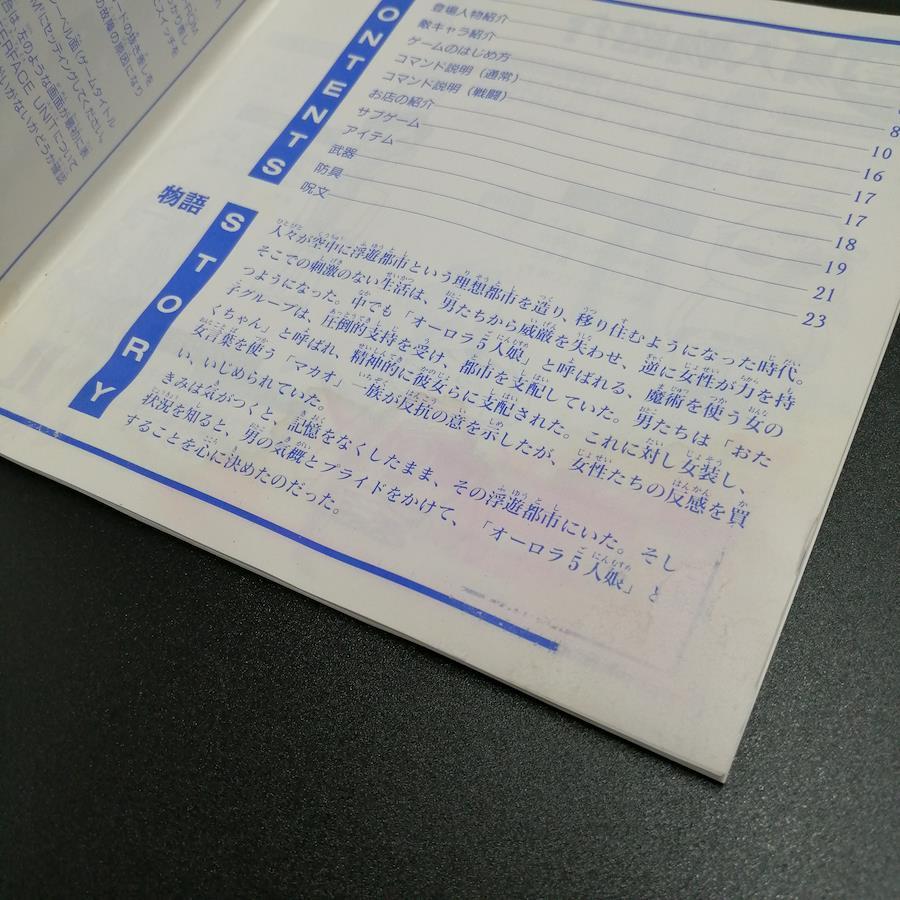 CONTENTS
登場人物紹介
敵キャラ紹介
ゲームのはじめ方 8
コマンド説明（通常） 10
コマンド説明（戦闘） 16
お店の紹介 17
サブゲーム 17
アイテム 18
武器 19
防具 21
呪文 23
物語
STORY
人々が空中に浮遊都市という理想都市を造り、移り住むようになった時代。
そこでの刺激のない生活は、男たちから威厳を失わせ、逆に女性が力を持
つようになった。中でも「オーロラ５人娘」と呼ばれる、魔術を使う女の
子グループは、圧倒的支持を受け、都市を支配していた。男たちは「おた
くちゃん」と呼ばれ、精神的に彼女らに支配された。これに対し女装し、
女言葉を使う「マカオ」一族が反抗の意を示したが、女性たちの反感を買
い、いじめられていた。
きみは気がつくと、記憶をなくしたまま、その浮遊都市にいた。そし
状況を知ると、男の気概とプライドをかけて、「オーロラ５人娘」と
することを心に決めたのだった。